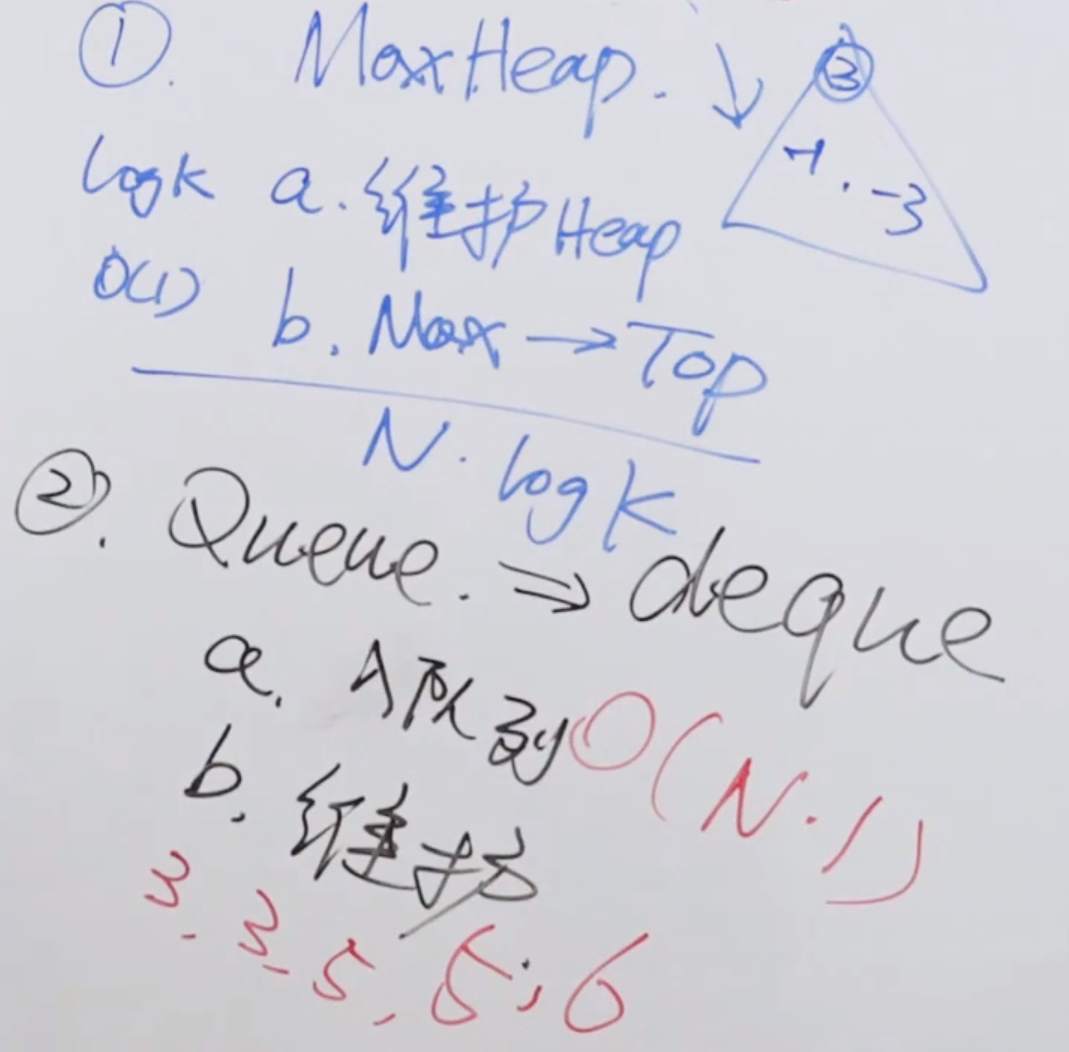 ①. MaxHeap. ↓ ③
-1. -3
logk a. 维护Heap
O(1) b. Max → Top
N. logk
②. Queue. ⇒ deque
a. 入队列 O(N·1)
b. 维护
3. 3. 5. 5; 6